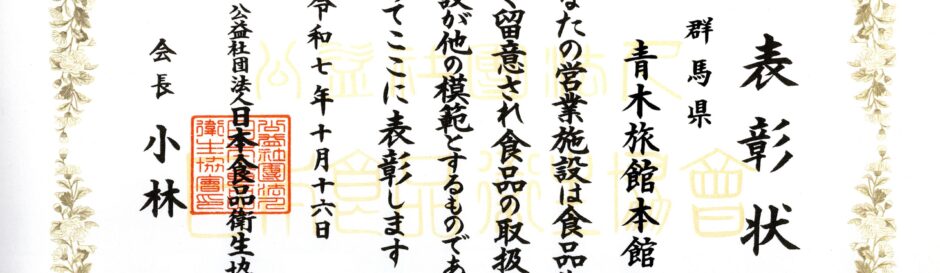 表彰状
群馬県
青木旅館本館
なたの営業施設は食品
く留意され食品の取扱
設が他の模範とするものであ
ってここに表彰します
令和七年十月十六日
公益社団法人日本食品衛生協
会長 小林